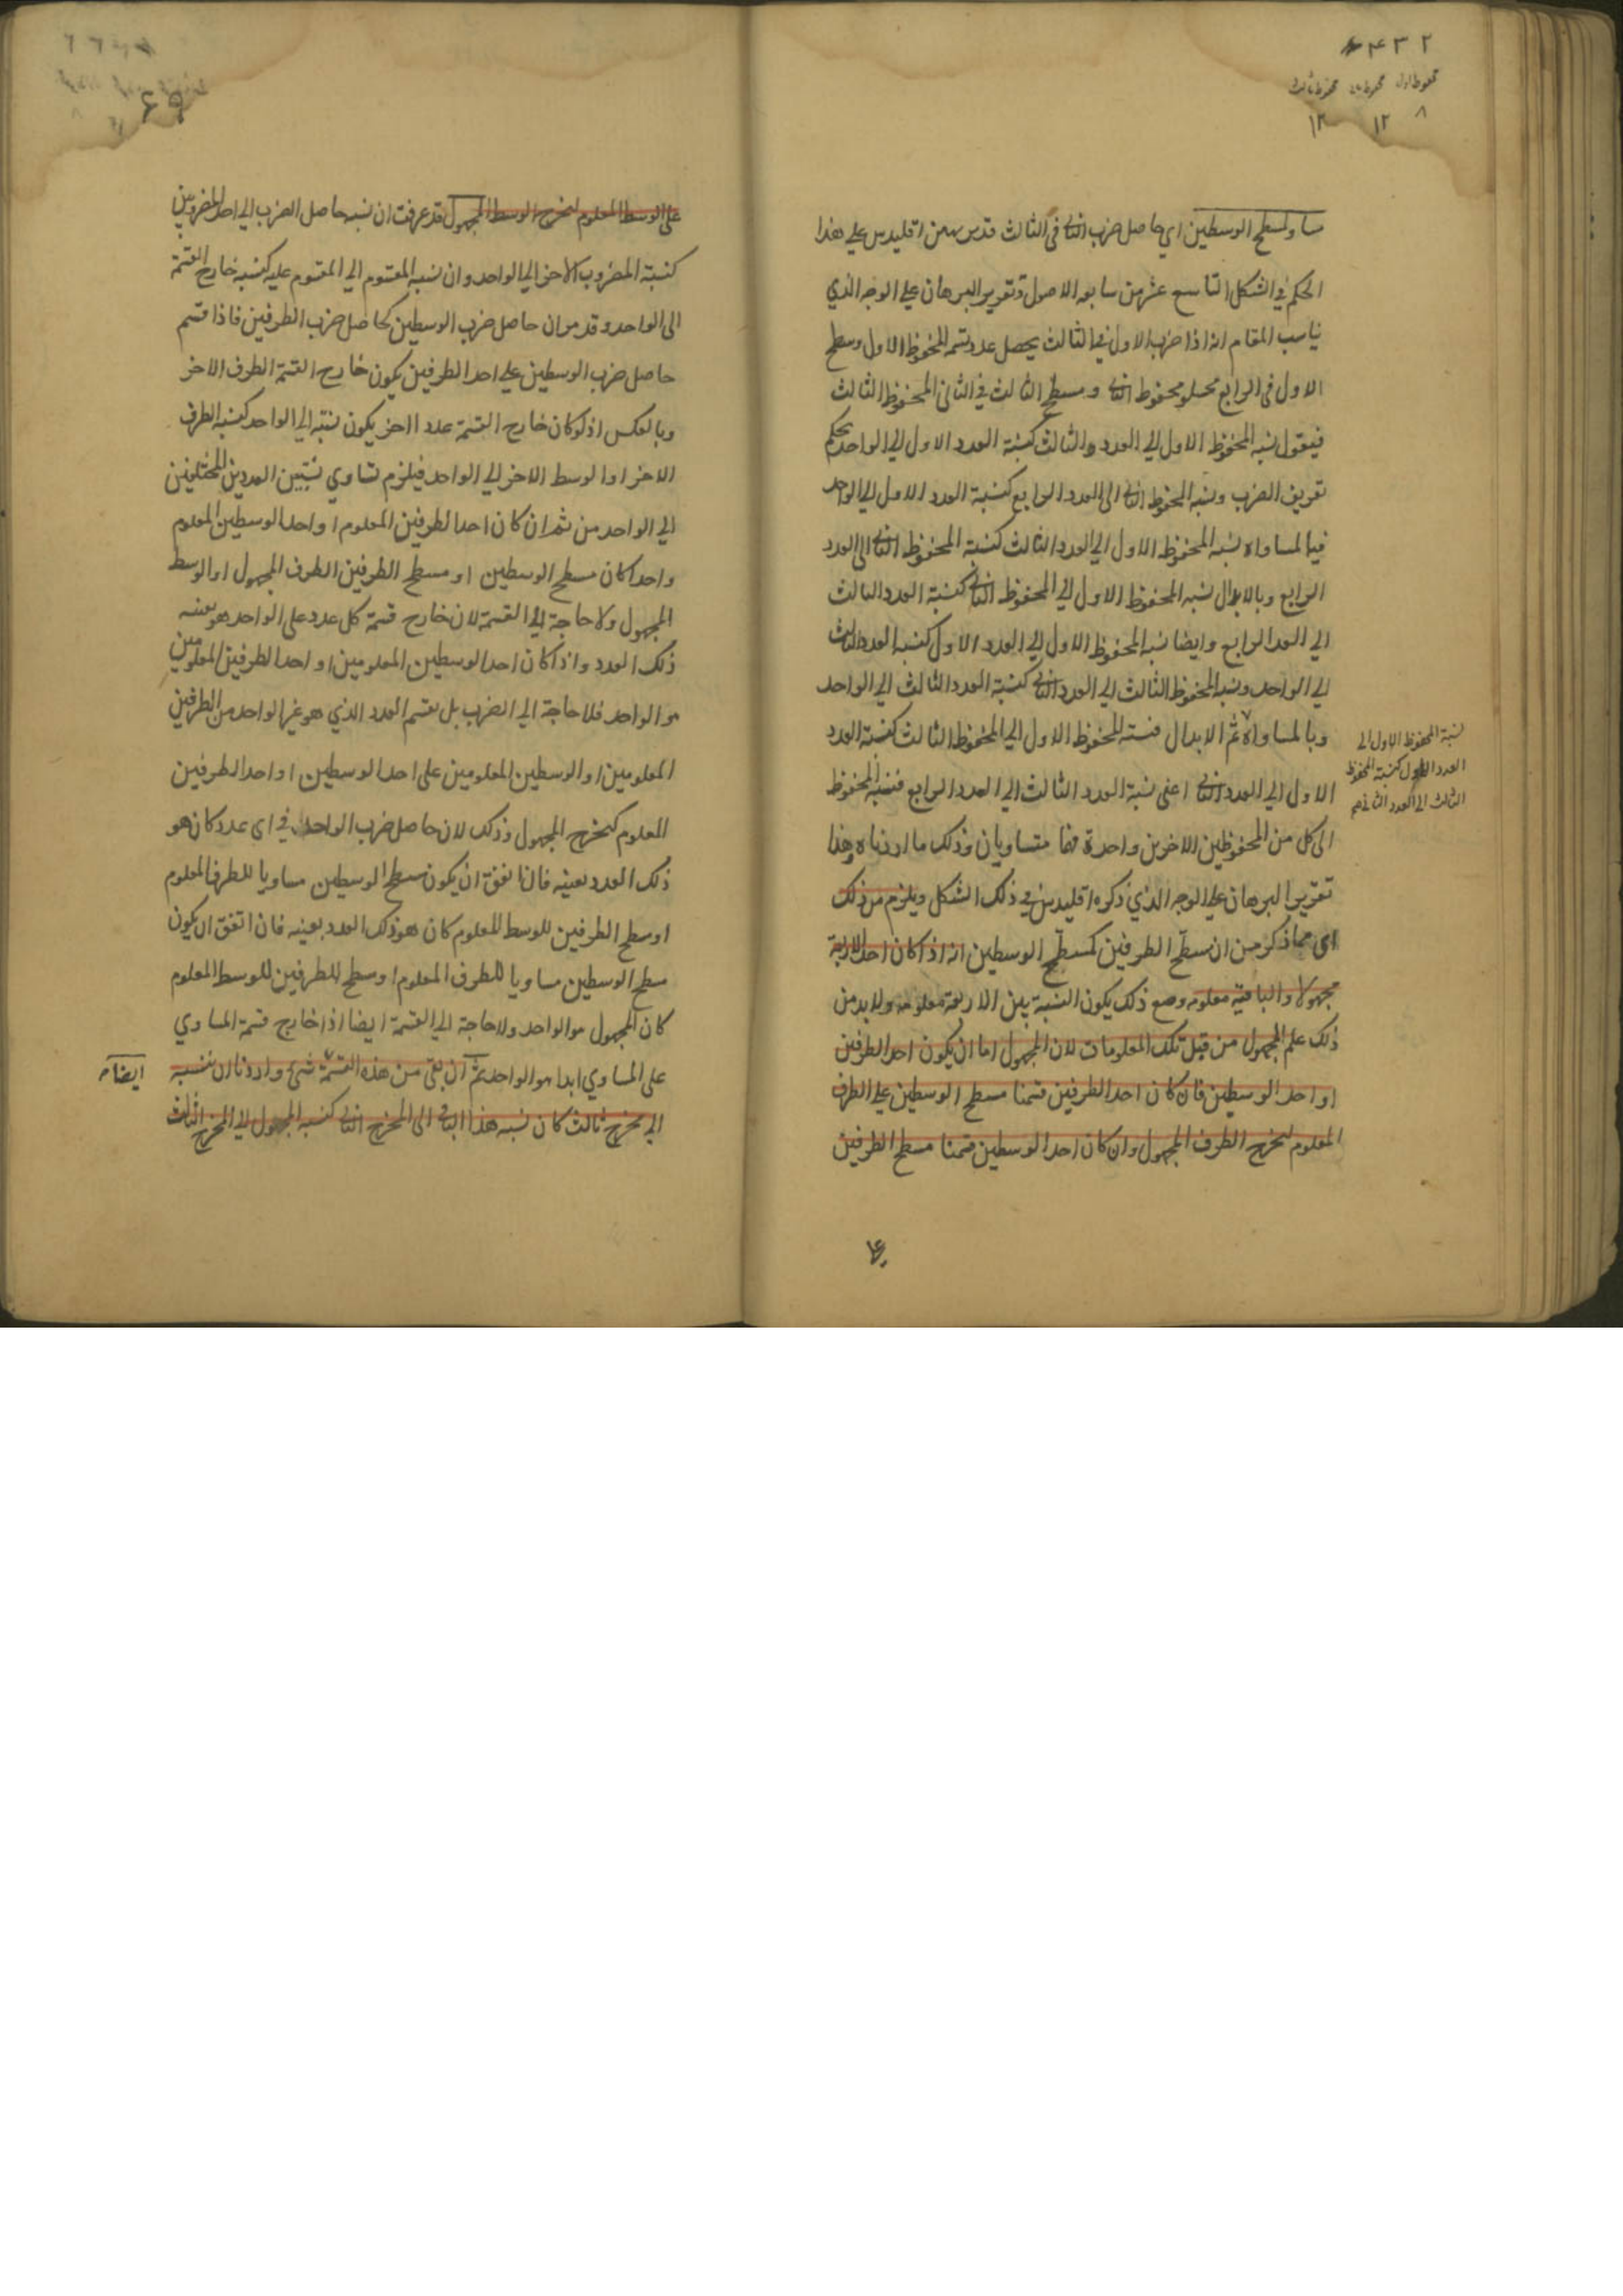 ٢ ٣ ٤
محفوظ اول محفوظ ثانى محفوظ ثالث
٨ ١٢ ١٢
مساو لمسطح الوسطين اي حاصل ضرب الثانى فى الثالث قد برهن اقليدس على هذا
الحكم في الشكل التاسع عشر من سابعه الاصول وتقرير البرهان على الوجه الذي
يناسب المقام انه اذا ضرب الاول في الثالث يحصل عدد نسمه المحفوظ الاول ومسطح
الاول فى الرابع محفوظ الثانى ومسطح الثالث في الثانى المحفوظ الثالث
فيقول نسبه المحفوظ الاول الي العدد الثالث كنسبة العدد الاول الي الواحد بحكم
تعريف الضرب ونسبه المحفوظ الثانى الى العدد الرابع كنسبة العدد الاول الي الواحد
فبالمساواه نسبه المحفوظ الاول الي العدد الثالث كنسبة المحفوظ الثانى الى العدد
الرابع وبالابدال نسبه المحفوظ الاول الي المحفوظ الثانى كنسبة العدد الثالث
الي العدد الرابع وايضا نسبه المحفوظ الاول الي العدد الاول كنسبه العدد الثالث
الي الواحد ونسبه المحفوظ الثالث الي العدد الثانى كنسبة العدد الثالث الي الواحد
وبالمساواة ثم الابدال فنسبته المحفوظ الاول الي المحفوظ الثالث كنسبة العدد
نسبة المحفوظ الاول الى
العدد الاول كنسبة المحفوظ
الثالث الى العدد الثانى
الاول الي العدد الثانى اعنى نسبة العدد الثالث الي العدد الرابع فنسبه المحفوظ
الى كل من المحفوظين الاخرين واحدة فهما متساويان وذلك ما اردناه وهذا
تقرير البرهان على الوجه الذي ذكره اقليدس في ذلك الشكل ويلزم من ذلك
اى مما ذكر من ان مسطح الطرفين كمسطح الوسطين انه اذا كان احد الاربعة
مجهولا والباقية معلومه ومع ذلك يكون النسبة بين الاربعة معلومه ولا بد من
ذلك علم المجهول من قبل تلك المعلومات لان المجهول اما ان يكون احد الطرفين
او احد الوسطين فان كان احد الطرفين قسمنا مسطح الوسطين على الطرف
المعلوم ليخرج الطرف المجهول وان كان احد الوسطين قسمنا مسطح الطرفين
على الوسط المعلوم ليخرج الوسط المجهول قد عرفت ان نسبه حاصل الضرب الي احد المضروبين
كنسبة المضروب الاخر الي الواحد وان نسبه المقسوم الي المقسوم عليه كنسبه خارج القسمة
الى الواحد وقد مر ان حاصل ضرب الوسطين كحاصل ضرب الطرفين فاذا قسم
حاصل ضرب الوسطين على احد الطرفين يكون خارج القسمة الطرف الاخر
وبالعكس اذ لو كان خارج القسمة عددا اخر يكون نسبته الي الواحد كنسبة الطرف
الاخر او الوسط الاخر الي الواحد فيلزم تساوي نسبتين العددين المختلفين
الي الواحد من ثم ان كان احد الطرفين المعلوم او احد الوسطين المعلوم
واحدا كان مسطح الوسطين او مسطح الطرفين الطرف المجهول او الوسط
المجهول ولا حاجة الي القسمة لان خارج قسمة كل عدد على الواحد هو بعينه
ذلك العدد واذا كان احد الوسطين المعلومين او احد الطرفين المعلومين
هو الواحد فلا حاجة الي الضرب بل نقسم العدد الذي هو غير الواحد من الطرفين
المعلومين او الوسطين المعلومين على احد الوسطين او احد الطرفين
المعلوم ليخرج المجهول وذلك لان حاصل ضرب الواحد في اى عدد كان هو
ذلك العدد بعينه فان اتفق ان يكون مسطح الوسطين مساويا للطرف المعلوم
او سطح الطرفين للوسط المعلوم كان هو ذلك العدد بعينه فان اتفق ان يكون
سطح الوسطين مساويا للطرف المعلوم او سطح للطرفين للوسط المعلوم
كان المجهول هو الواحد ولا حاجة الي القسمة ايضا اذا خارج قسمة المساوي
على المساوي ابدا هو الواحد ثم ان بقى من هذه القسمة شئ واردنا ان ننسبه
ايضا
الي مخرج ثالث كان نسبه هذا الباقى الى المخرج الثانى كنسبه المجهول الي المخرج الثالث